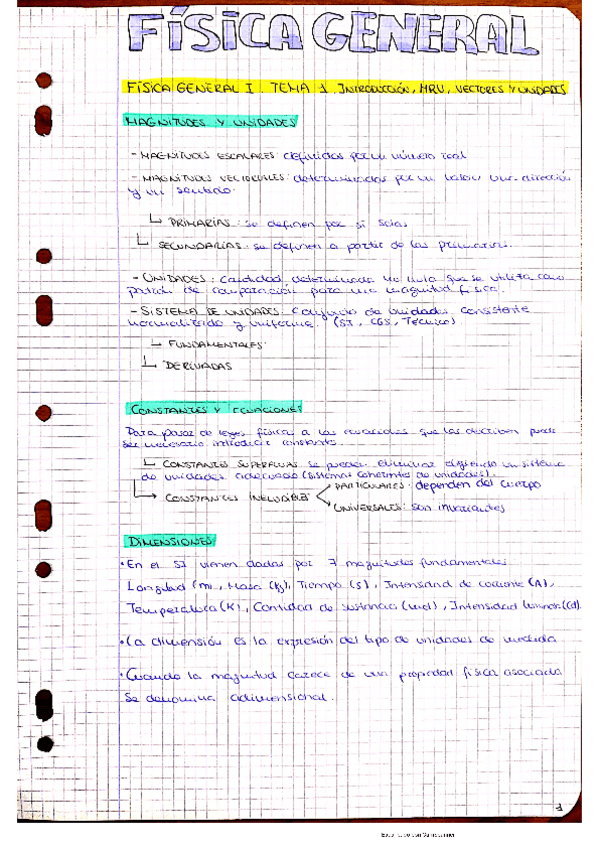 FÍSICA GENERAL
FÍSICA GENERAL I. TEMA 1. INTRODUCCIÓN, MRU, VECTORES Y UNIDADES
MAGNITUDES Y UNIDADES
- MAGNITUDES ESCALARES: definidas por un número real
- MAGNITUDES VECTORIALES: determinadas por un valor, una dirección
y un sentido.
PRIMARIAS: se definen por sí solas
SECUNDARIAS: se definen a partir de las primarias.
- UNIDADES: Cantidad determinada que se utiliza como
patrón de comparación para una magnitud física.
- SISTEMA DE UNIDADES: Conjunto de unidades consistente
normalizado y uniforme. (SI, CGS, Técnico)
FUNDAMENTALES
DERIVADAS
CONSTANTES Y ECUACIONES
Para pasar de leyes físicas a las ecuaciones que las describen puede
ser necesario introducir constantes.
CONSTANTES SUPERFLUAS se pueden eliminar eligiendo un sistema
de unidades adecuado (Sistemas Coherentes de unidades).
CONSTANTES INELUDIBLES
PARTICULARES: dependen del cuerpo
UNIVERSALES: son invariantes
DIMENSIONES
• En el SI vienen dadas por 7 magnitudes fundamentales
Longitud (m), Masa (kg), Tiempo (s), Intensidad de corriente (A),
Temperatura (K), Cantidad de sustancia (mol), Intensidad luminosa (cd).
• La dimensión es la expresión del tipo de unidades de medida
• Cuando la magnitud carece de una propiedad física asociada
se denomina adimensional.
1
Escaneado con CamScanner